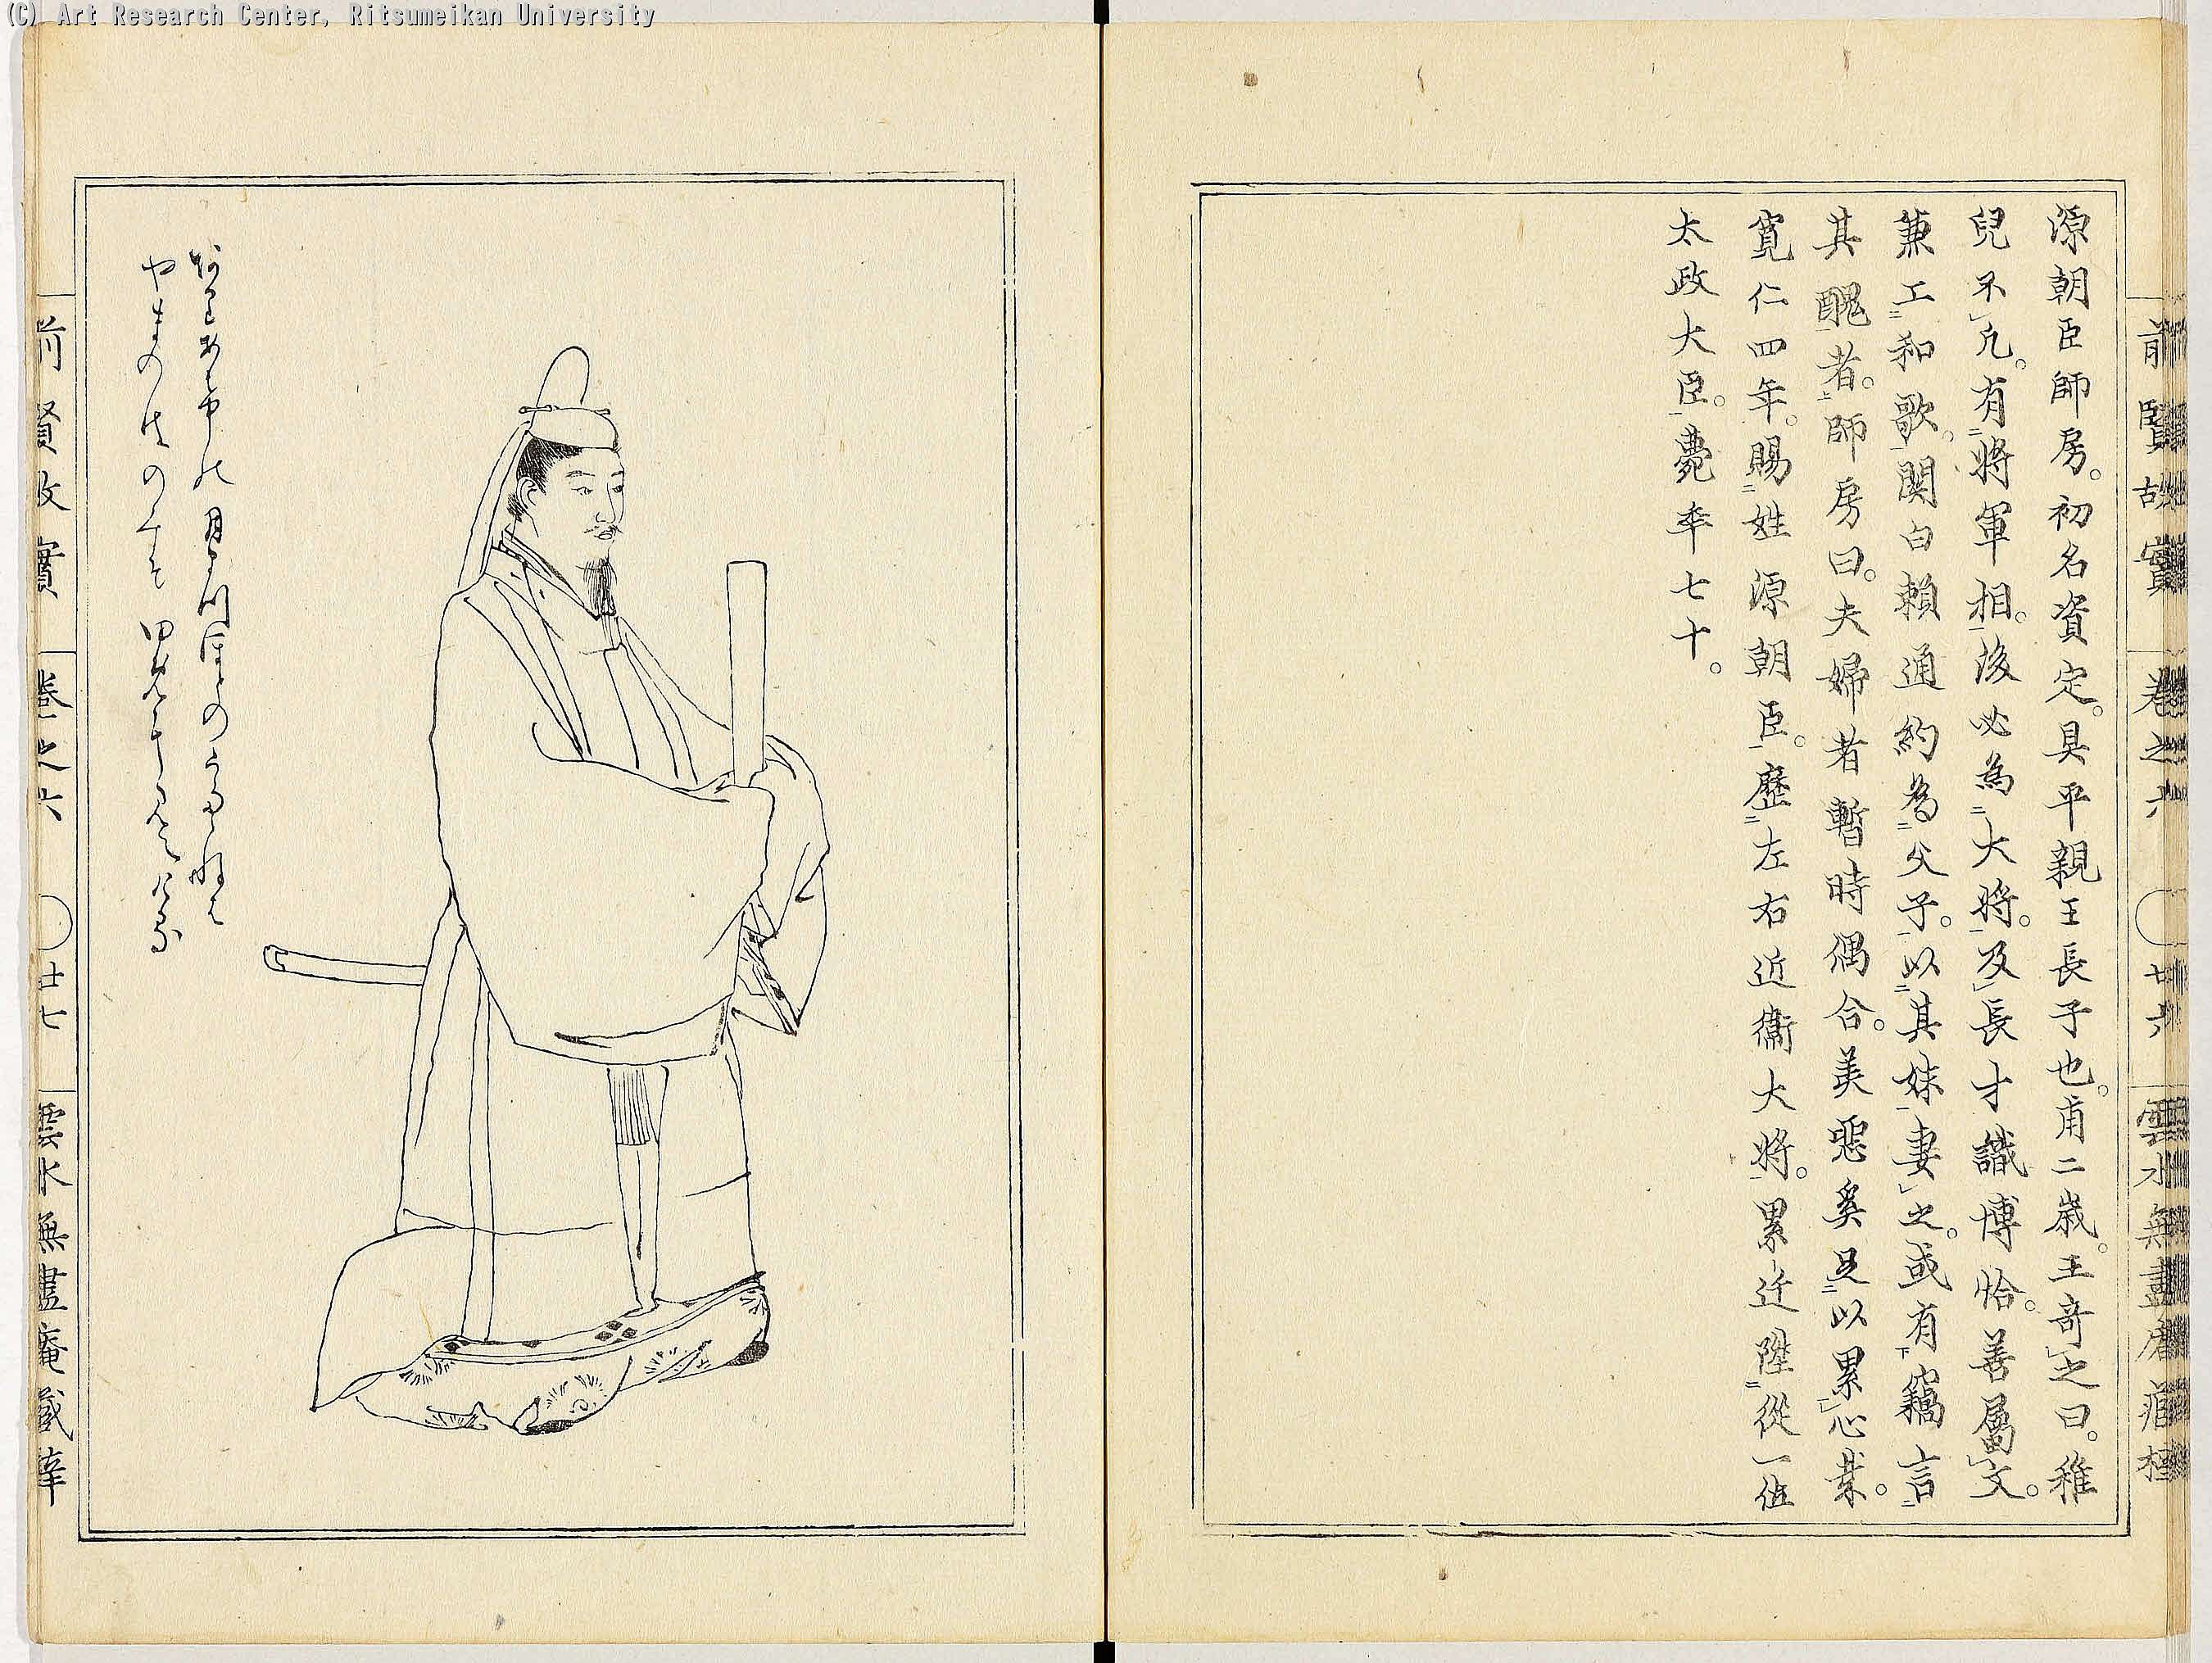 (C) Art Research Center, Ritsumeikan University
前賢故實 巻之六 廿六 雲水無盡庵
源朝臣師房。初名資定。具平親王長子也。甫二歳。王奇之曰。稚
兒不凢。有將軍相。後必為大將。及長才識博恰。善属文。
兼工和歌。関白頼通約為父子。以其妹妻之。或有竊言
其醜者。師房曰。夫婦者暫時偶合。美惡奚足以累心哉。
寛仁四年。賜姓源朝臣。歴左右近衞大將。累迁陞從一位
太政大臣。薨年七十。
月まつほとのうたゝねは
やまのはのみそゆめにみえける
前賢故實 巻之六 廿七 雲水無盡庵蔵梓